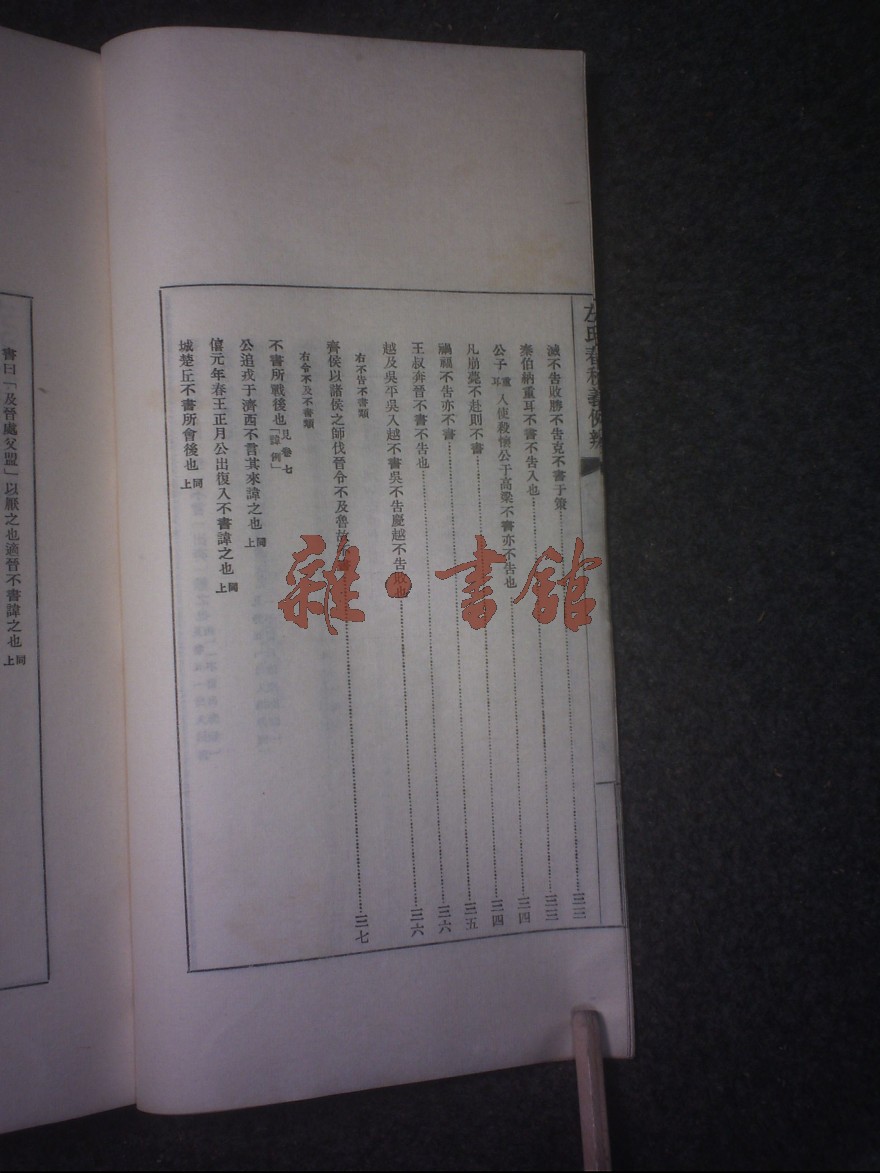 左氏春秋義例辨
滅不告敗勝不告克不書于策 三三
秦伯納重耳不書不告入也 三三
公子重耳入使殺懷公于高梁不書亦不告也 三四
凡崩薨不赴則不書 三四
禍福不告亦不書 三五
王叔奔晉不書不告也 三六
越及吳平吳入越不書吳不告慶越不告敗也 三六
右不告不書類
齊侯以諸侯之師伐晉令不及魯故不 三七
右令不及不書類
不書所戰後也見卷七「諱例」
公追戎于濟西不言其來諱之也同上
僖元年春王正月公出復入不書諱之也同上
城楚丘不書所會後也同上
書曰「及晉處父盟」以厭之也適晉不書諱之也同上
雜·書館